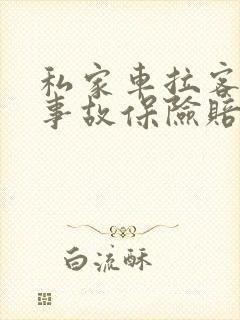 私家車拉客
事故保險賠
白流酥